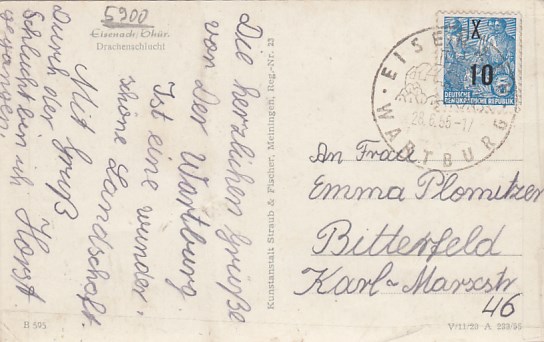 5900
Eisenach/Thür.
Drachenschlucht
Die herzlichen Grüße
von Der Wartburg
Ist eine wunder,
schöne Landschaft.
Mit Gruß
Horst
Durch der
Schlucht bin ich
gegangen.
Kunstanstalt Straub & Fischer, Meiningen, Reg.-Nr. 23
B 595
X
10
DEUTSCHE
DEMOKRATISCHE REPUBLIK
EISE
28.6.56-17
WARTBURG
An Frau
Emma Plomitzer
Bitterfeld
Karl-Marxstr
46
V/11/28 A 233/55